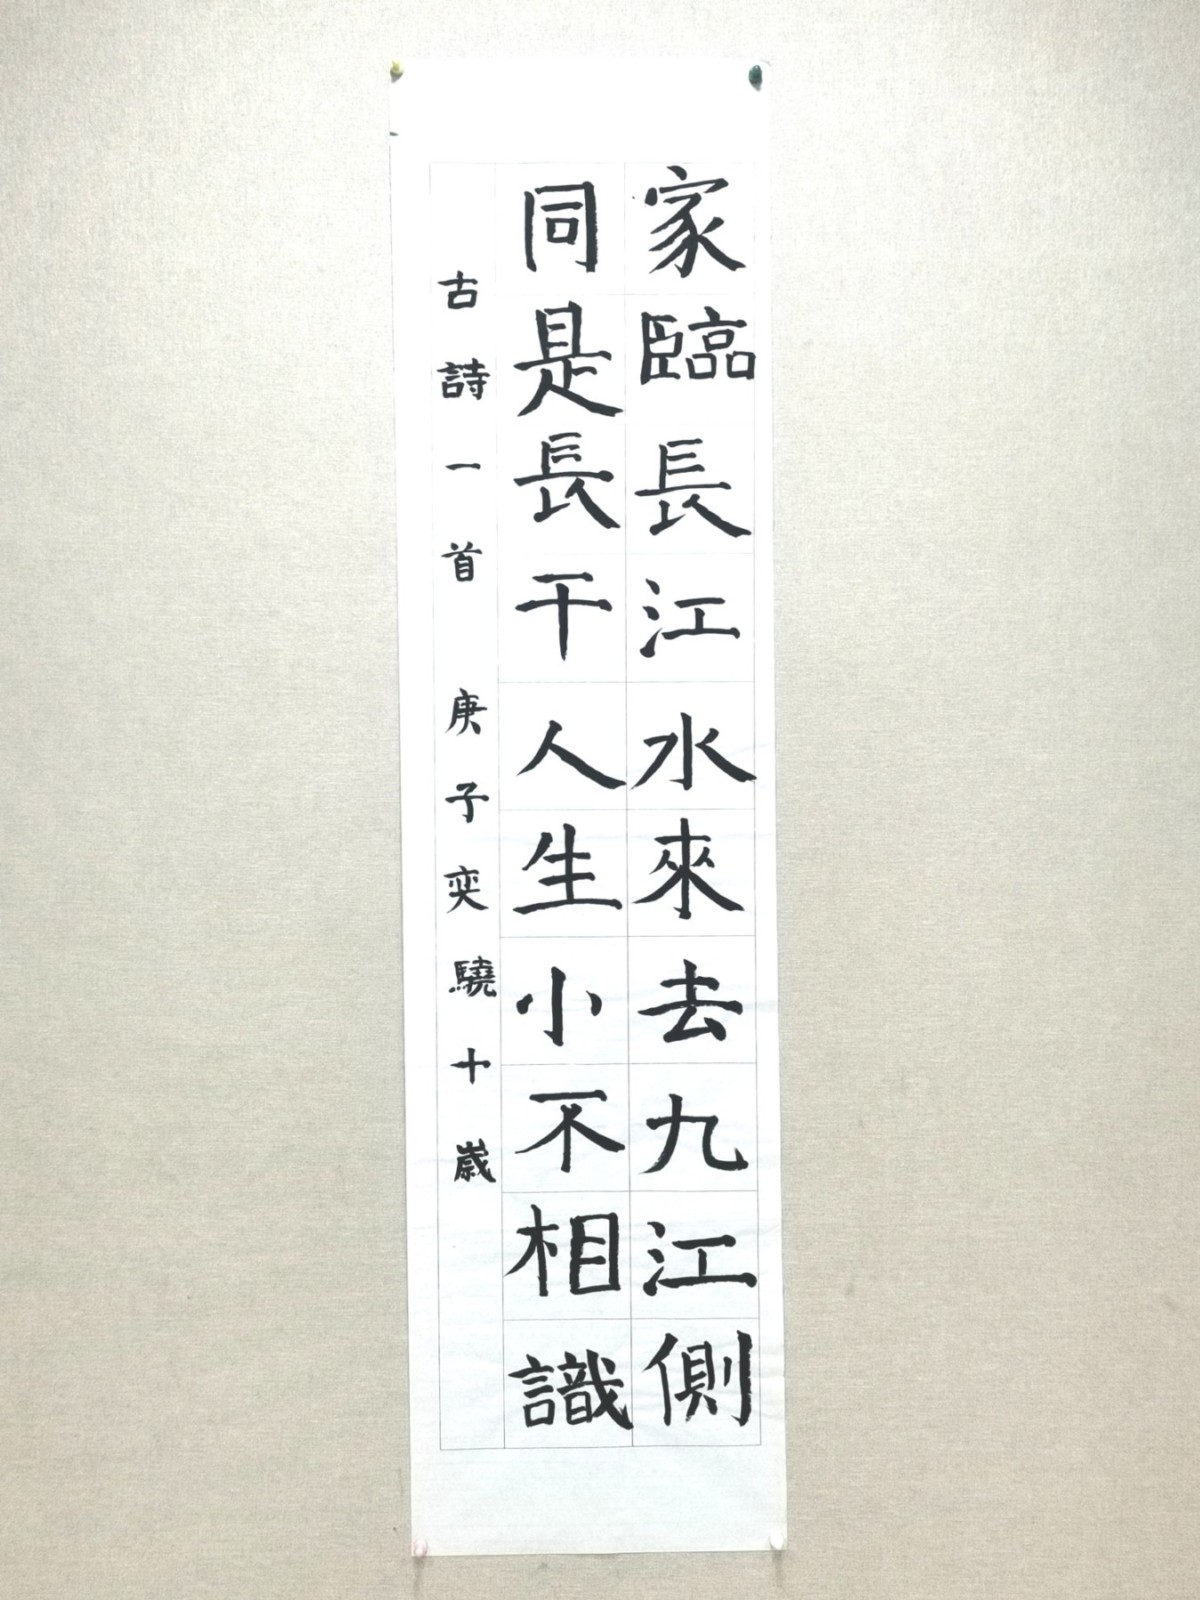 家臨長江水來去九江側
同是長干人生小不相識
古詩一首 庚子奕驍十歲